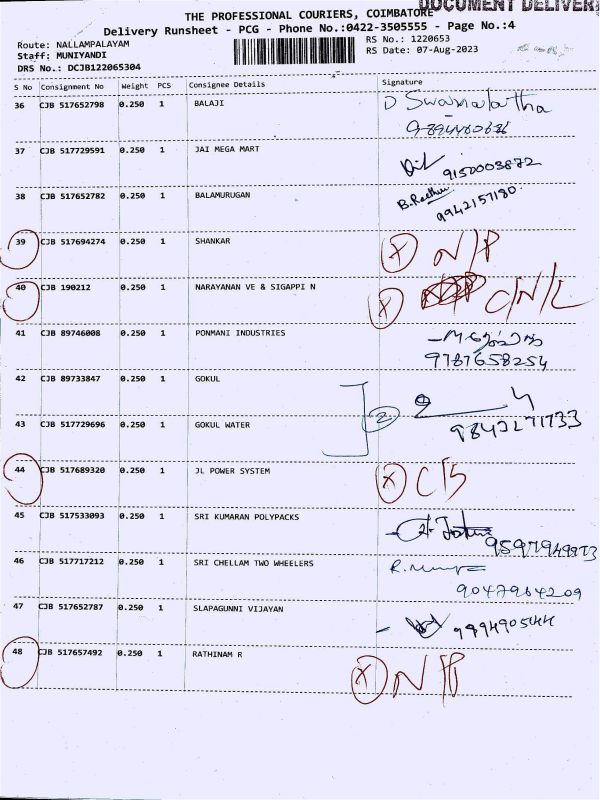 DOCUMENT DELIVERY
THE PROFESSIONAL COURIERS, COIMBATORE
Delivery Runsheet - PCG - Phone No.:0422-3505555 - Page No.:4
Route: NALLAMPALAYAM RS No.: 1220653
Staff: MUNIYANDI RS Date: 07-Aug-2023
DRS No.: DCJB122065304
S No Consignment No Weight PCS Consignee Details Signature
36 CJB 517652798 0.250 1 BALAJI D Swarnalatha
37 CJB 517729591 0.250 1 JAI MEGA MART 9150003872
38 CJB 517652782 0.250 1 BALAMURUGAN
9942157180
39 CJB 517694274 0.250 1 SHANKAR X N/P
40 CJB 190212 0.250 1 NARAYANAN VE & SIGAPPI N X C/N/L
41 CJB 89746008 0.250 1 PONMANI INDUSTRIES
9787658254
42 CJB 89733847 0.250 1 GOKUL
2
43 CJB 517729696 0.250 1 GOKUL WATER 9843271733
44 CJB 517689320 0.250 1 JL POWER SYSTEM X C/S
45 CJB 517533093 0.250 1 SRI KUMARAN POLYPACKS
9597949973
46 CJB 517717212 0.250 1 SRI CHELLAM TWO WHEELERS
9047964209
47 CJB 517652787 0.250 1 SLAPAGUNNI VIJAYAN
48 CJB 517657492 0.250 1 RATHINAM R X N/P